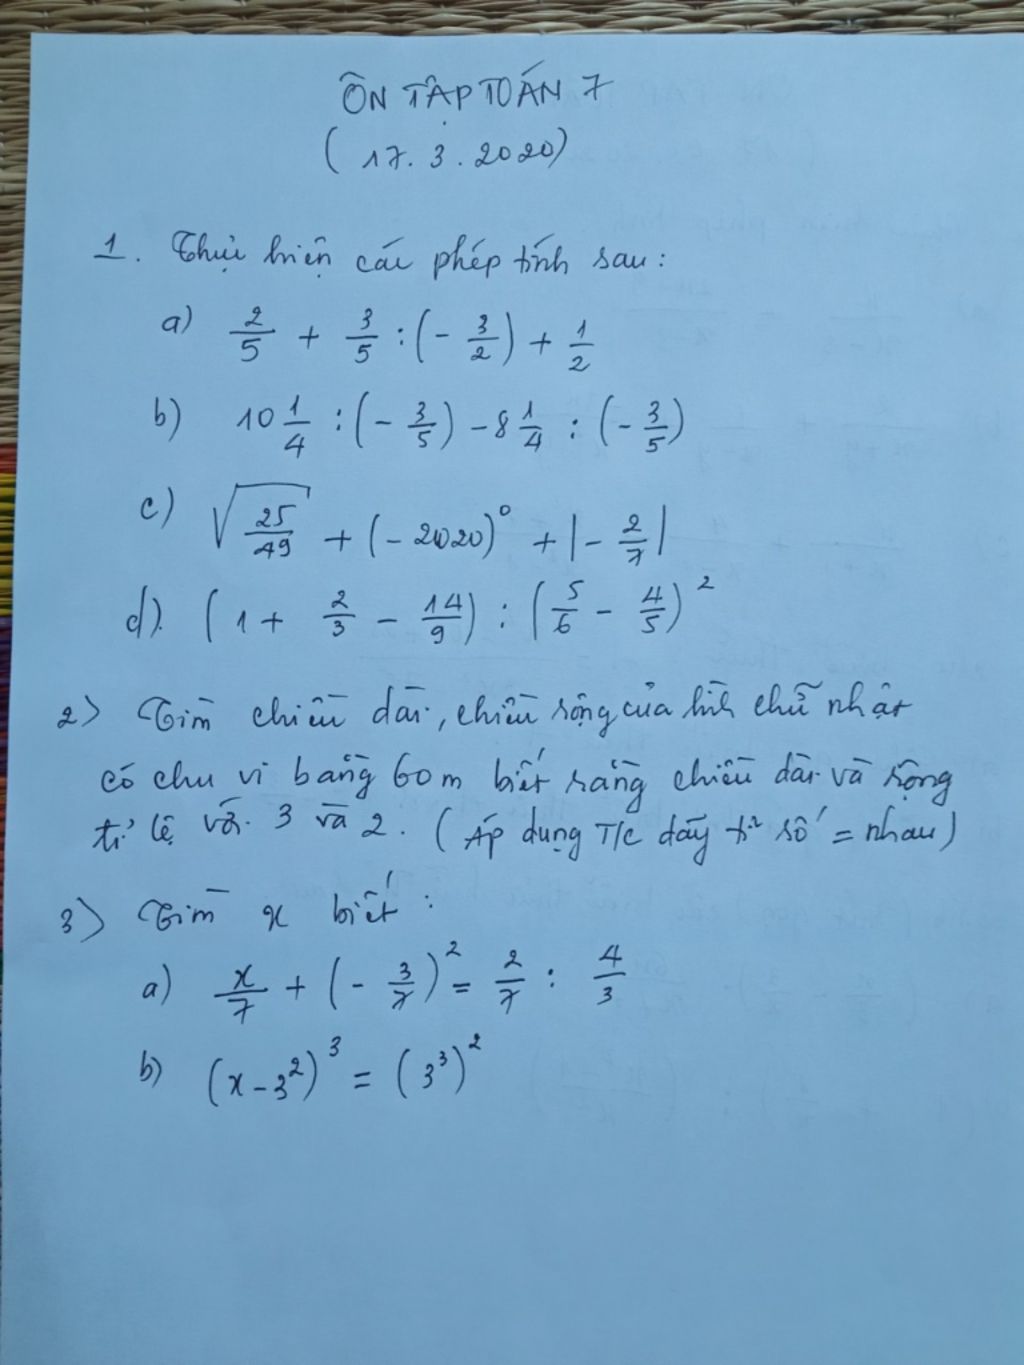 ÔN TẬP TOÁN 7
(17.3.2020)
1. Thực hiện các phép tính sau:
a) 2/5 + 3/5 : (- 3/2) + 1/2
b) 10 1/4 : (- 3/5) - 8 1/4 : (- 3/5)
c) √(25/49) + (-2020)⁰ + |- 2/7|
d). (1 + 2/3 - 14/9) : (5/6 - 4/5)²
2) Tìm chiều dài, chiều rộng của hình chữ nhật
có chu vi bằng 60 m biết rằng chiều dài và rộng
tỉ lệ với 3 và 2. (Áp dụng T/c dãy tỉ số = nhau)
3) Tìm x biết:
a) x/7 + (- 3/7)² = 2/7 : 4/3
b) (x - 3²)³ = (3³)²